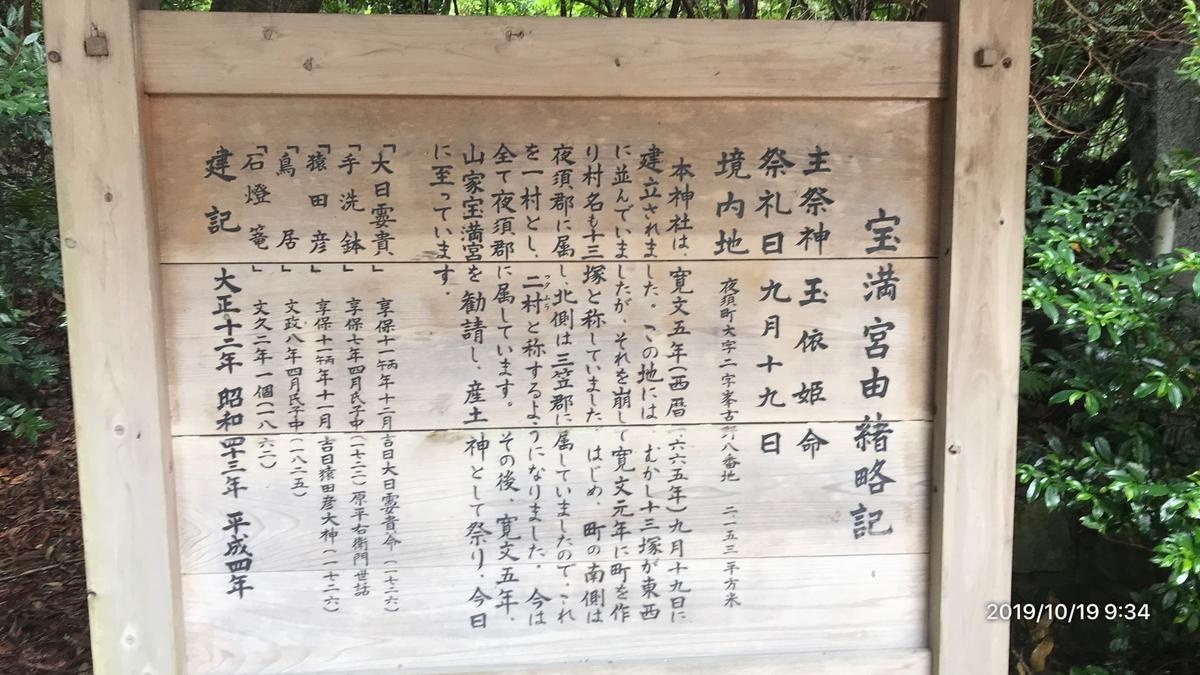 宝満宮由緒略記
主祭神 玉依姫命
祭礼日 九月十九日
境内地 夜須町大字二字峯古野八番地 二一五三平方米
本神社は、寛文五年(西暦一六六五年)九月十九日に
建立されました。この地には、むかし十三塚が東西
に並んでいましたが、それを崩して寛文元年に町を作
り村名も十三塚と称していました。はじめ、町の南側は
夜須郡に属し、北側は三笠郡に属していましたので、これ
を一村とし、二村と称するようになりました。今は
全て夜須郡に属しています。その後、寛文五年、
山家宝満宮を勧請し、産土神として祭り、今日
に至っています。
「大日孁貴」 享保十一丙午年十二月吉日大日孁貴命(一七二六)
「手洗鉢」 享保七年四月氏子中(一七二二)原平右衛門世話
「猿田彦」 享保十一丙午年十一月吉日猿田彦大神(一七二六)
「鳥居」 文政八年四月氏子中(一八二五)
「石燈篭」 文久二年一個(一八六二)
建記 大正十二年 昭和四十三年 平成四年
2019/10/19 9:34